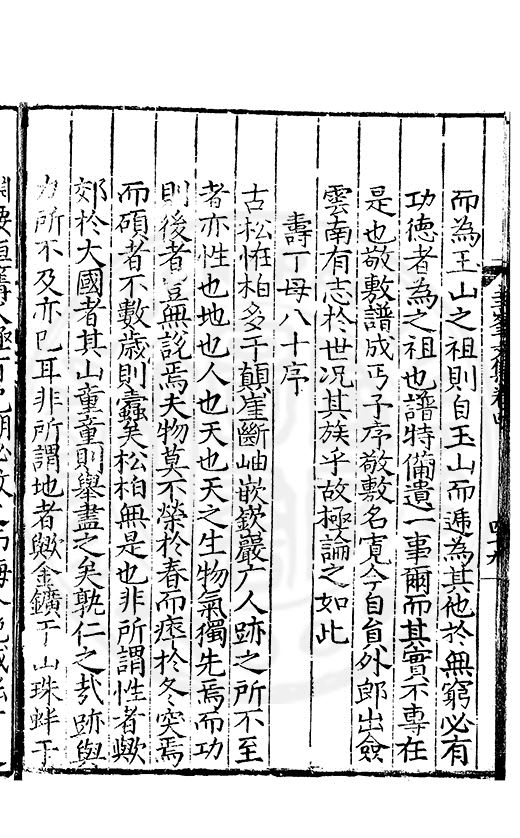 而為玉山之祖則自玉山而逓為其他於無窮必有
功德者為之祖也譜特備遺一事爾而其實不專在
是也敬敷譜成丐予序敬敷名寛今自貟外郎出僉
雲南有志於世况其族乎故極論之如此
壽丁母八十序
古松恠柏多于顛崖斷岫嵌嶔巖广人跡之所不至
者亦性也地也人也天也天之生物氣獨先焉而功
則後者豈無說焉夫物莫不榮於春而瘁於冬突焉
而碩者不數歲則蠧矣松柏無是也非所謂性者歟
郊於大國者其山童童則舉盡之矣孰仁之㢤跡與
力所不及亦已耳非所謂地者歟金鑛于山珠蚌于